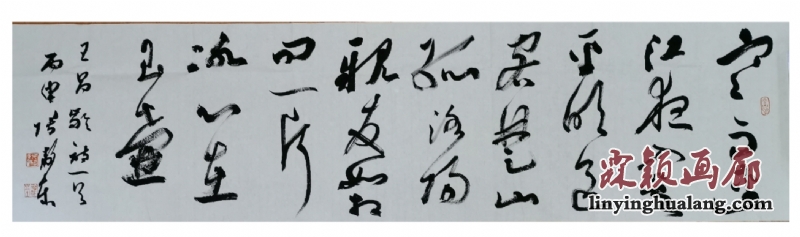 寒雨連
江夜入吳
平明送
客楚山
孤洛陽
親友如相
問一片
冰心在
玉壺
王昌齡詩一首
丙申
霖颖画廊
linyinghualang.com